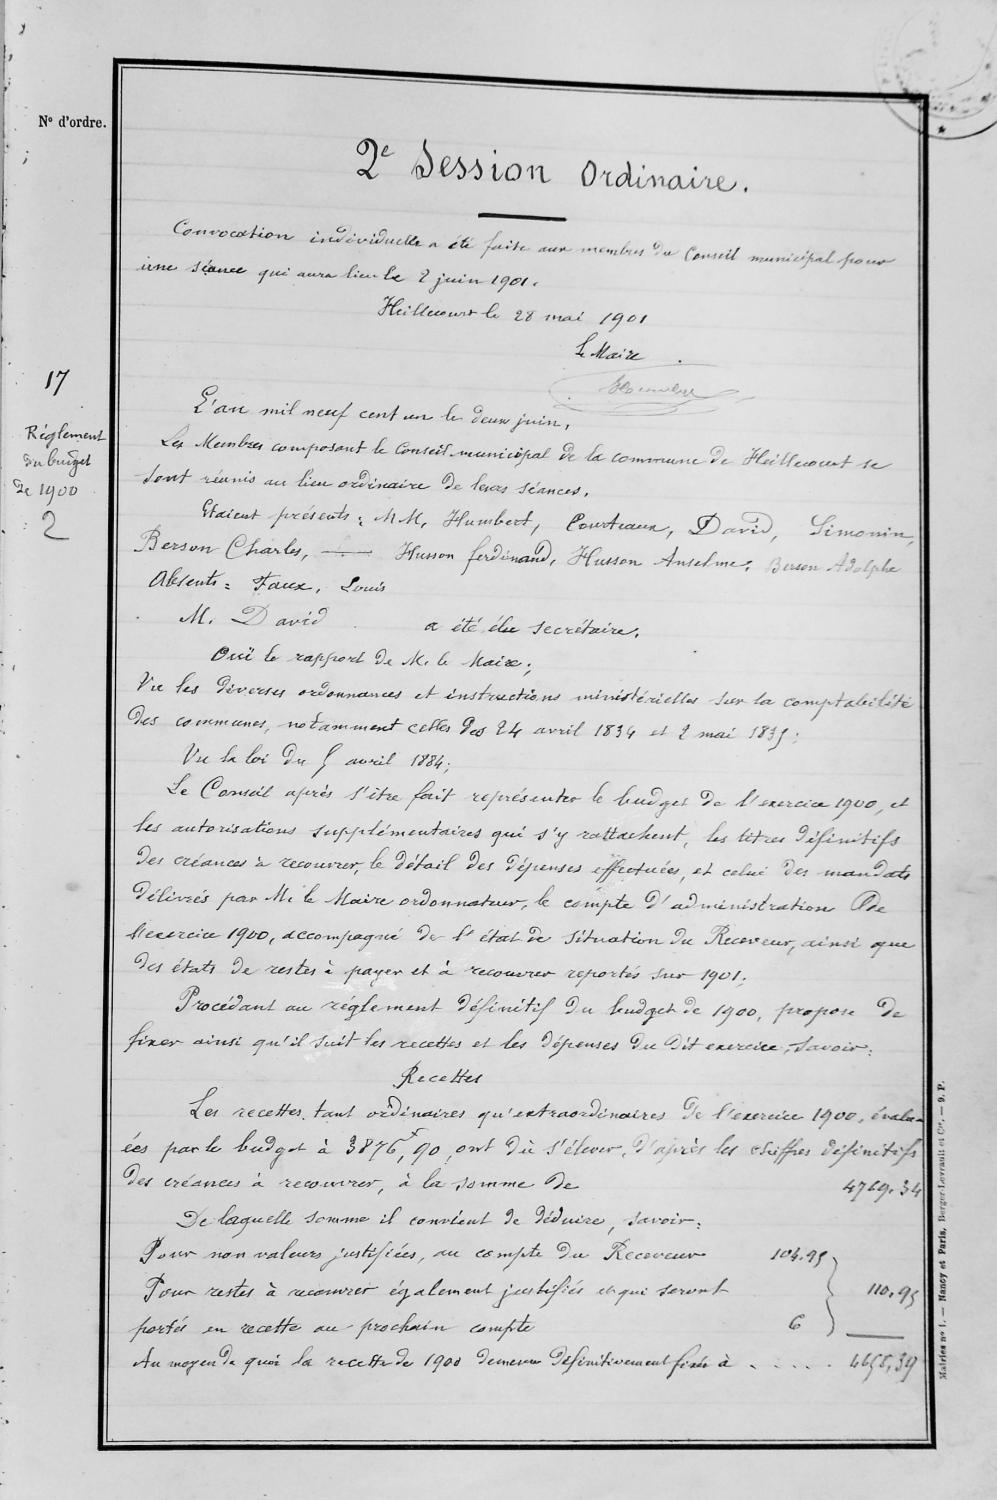 N° d'ordre.
2e Session Ordinaire.
Convocation individuelle a été faite aux membres du Conseil municipal pour
une séance qui aura lieu le 2 juin 1901.
Heillecourt le 28 mai 1901
Le Maire
17
Règlement
du budget
de 1900
2
L'an mil neuf cent un le deux juin,
Les Membres composant le Conseil municipal de la commune de Heillecourt se
sont réunis au lieu ordinaire de leurs séances.
Etaient présents : MM. Humbert, Courteaux, David, Simonin,
Berson Charles, Husson ferdinand, Husson Anselme, Berson Adolphe
Absents : Faux, Louis
M. David a été élu secrétaire.
Ouï le rapport de M. le Maire ;
Vu les diverses ordonnances et instructions ministérielles sur la comptabilité
des communes, notamment celles des 24 avril 1834 et 2 mai 1835 ;
Vu la loi du 5 avril 1884 ;
Le Conseil après s'être fait représenter le budget de l'exercice 1900, et
les autorisations supplémentaires qui s'y rattachent, les titres définitifs
des créances à recouvrer, le détail des dépenses effectuées, et celui des mandats
délivrés par M. le Maire ordonnateur, le compte d'administration de
l'exercice 1900, accompagné de l'état de situation du Receveur, ainsi que
des états de restes à payer et à recouvrer reportés sur 1901 ;
Procédant au règlement définitif du budget de 1900, propose de
fixer ainsi qu'il suit les recettes et les dépenses du dit exercice, savoir :
Recettes
Les recettes tant ordinaires qu'extraordinaires de l'exercice 1900, évalu-
ées par le budget à 3876f,90, ont dû s'élever, d'après les chiffres définitifs
des créances à recouvrer, à la somme de 4769.34
De laquelle somme il convient de déduire, savoir :
Pour non valeurs justifiées, au compte du Receveur 104.95
Pour restes à recouvrer également justifiés et qui seront 110.95
portés en recette au prochain compte 6
Au moyen de quoi la recette de 1900 demeure définitivement fixée à . . . . 4658,39
Mairies n° 1. — Nancy et Paris, Berger-Levrault et Cie. — 9. P.